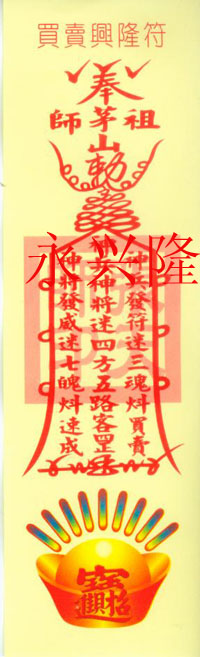 買賣興隆符
奉
師茅祖
山
勅
永兴隆
神兵發符迷三魂炓買賣
神兵神將迷四方五路客罡
神將發威迷七魄炓速成
招財進寶